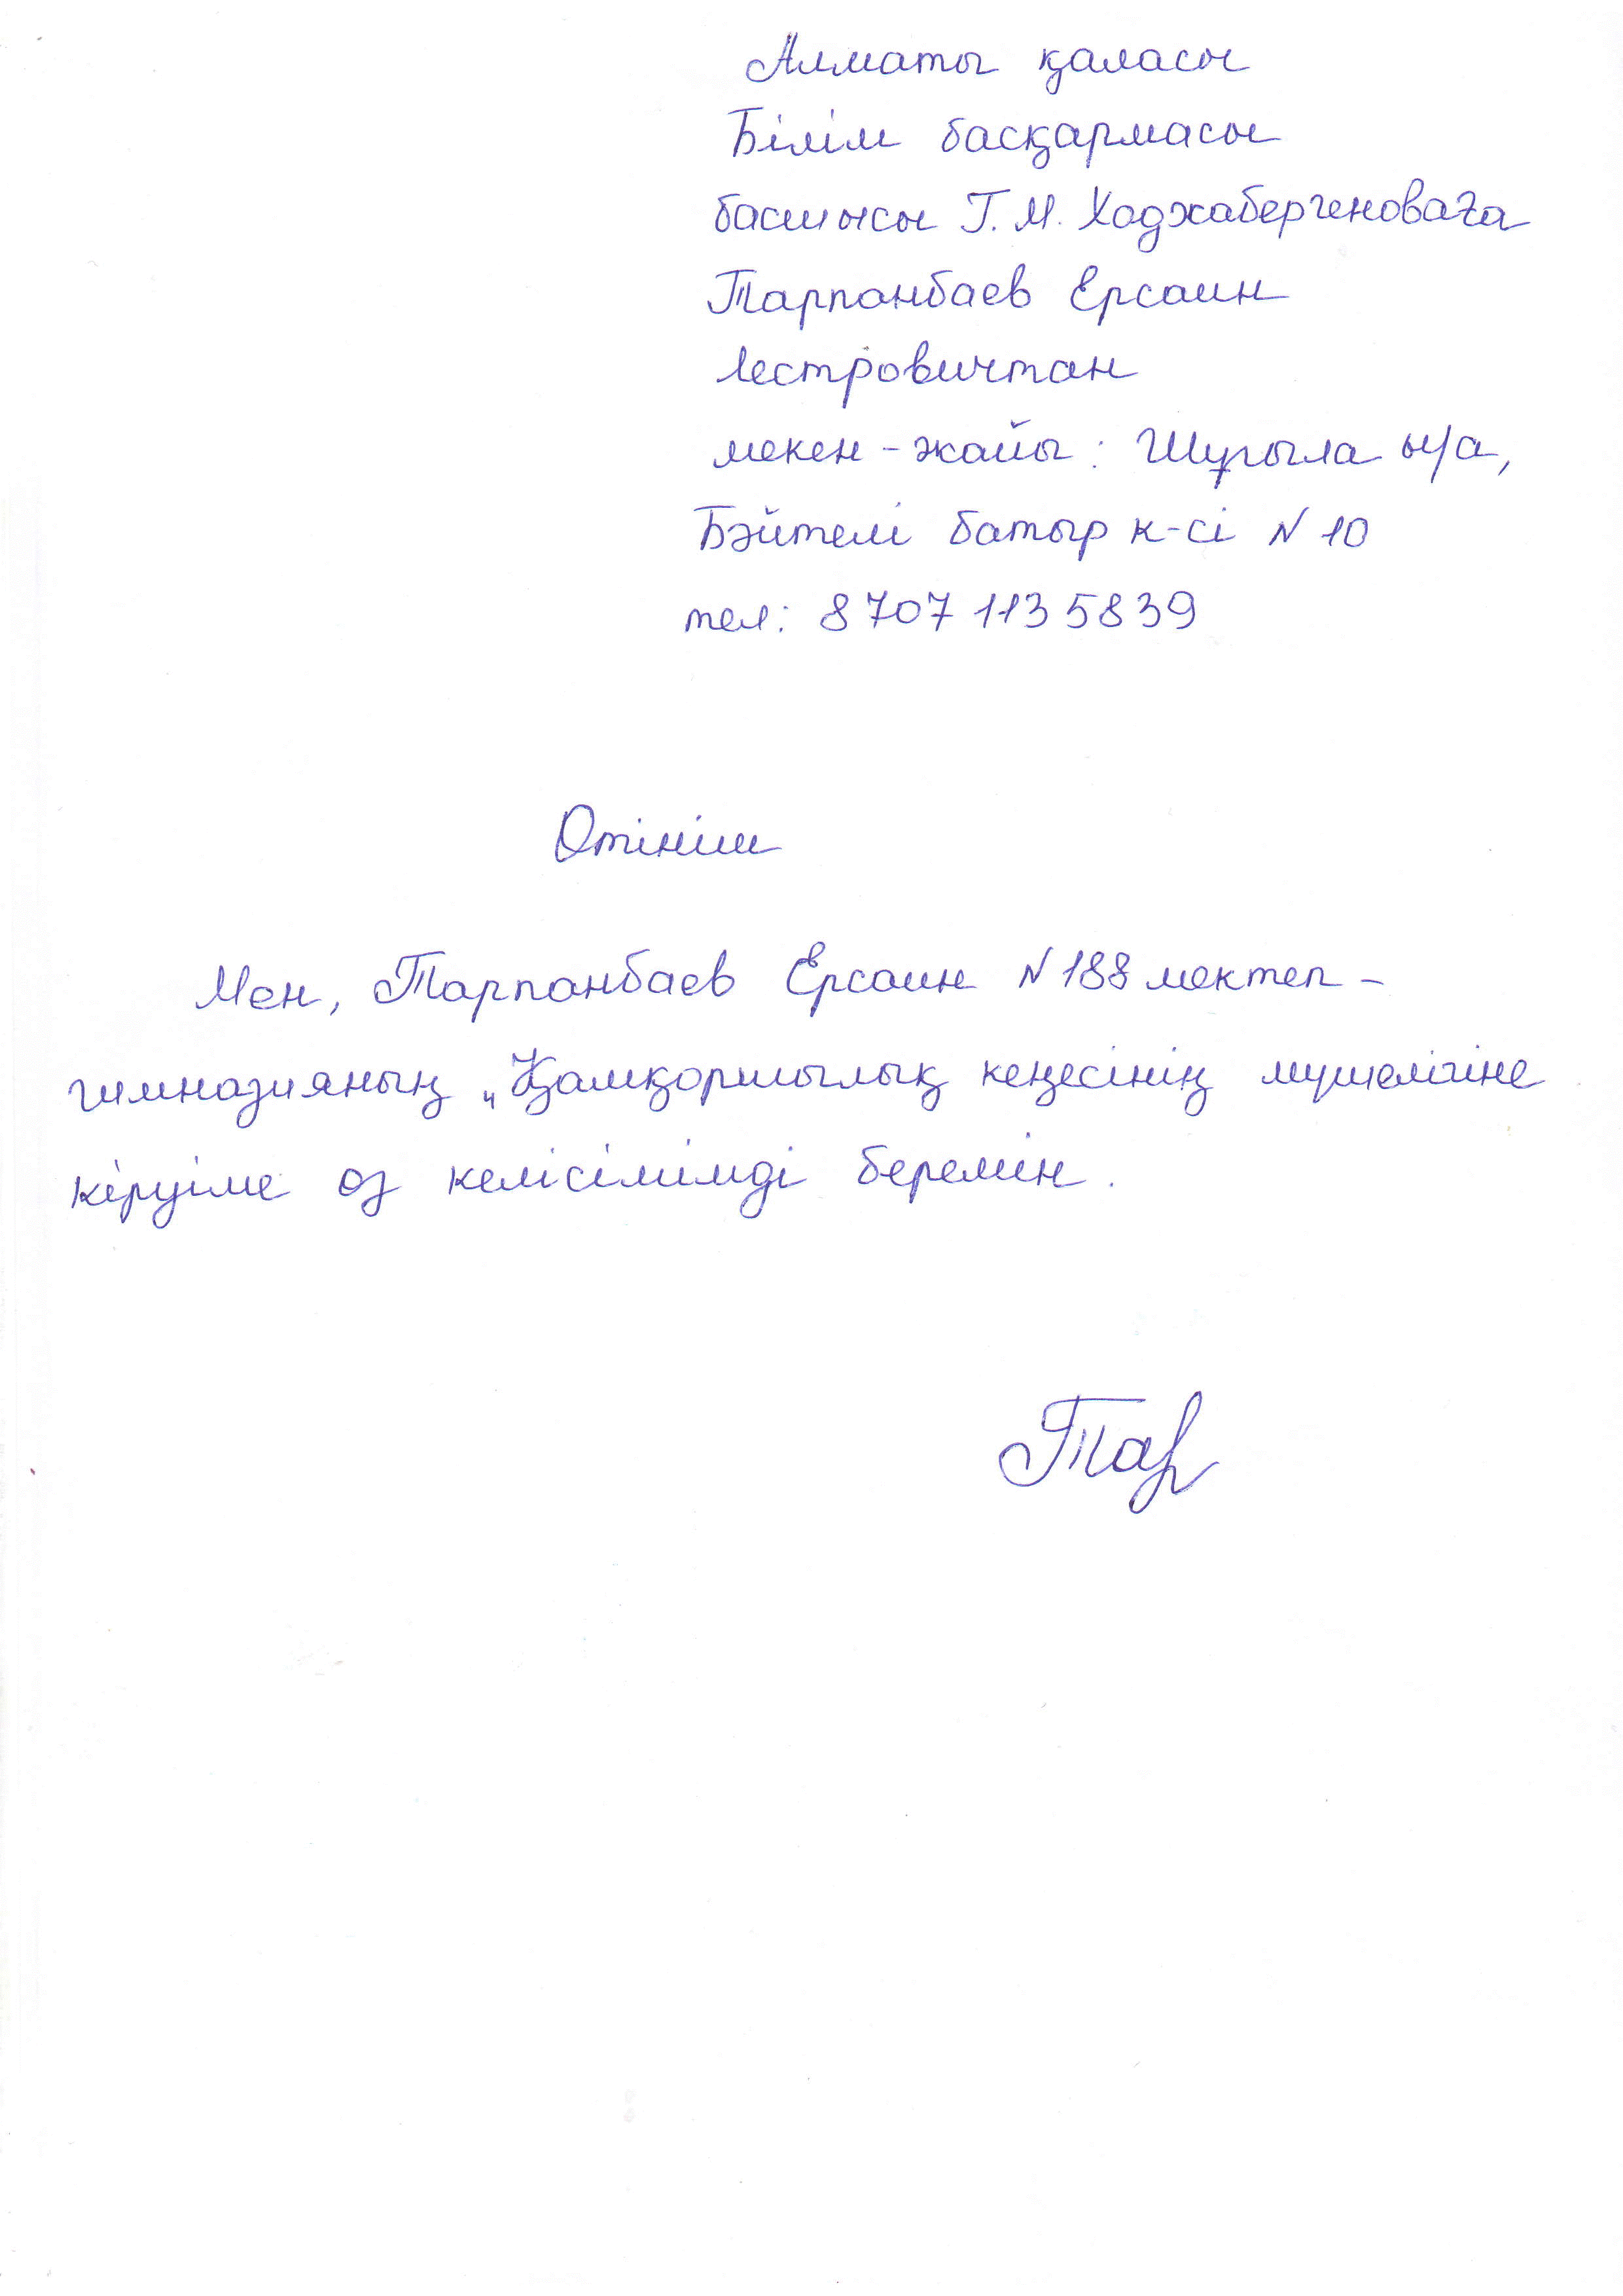 Алматы қаласы
Білім басқармасы
басшысы Г. М. Ходжабергеноваға
Тарпанбаев Ерсаин
Лестровичтан
мекен-жайы: Шұғыла ы/а,
Бәйтелі батыр к-сі N 10
тел: 8 707 113 58 39
Өтініш
Мен, Тарпанбаев Ерсаин N 188 мектеп-
гимназияның „Қамқоршылық кеңесінің мүшелігіне
кіруіме өз келісілімді беремін.
Тар